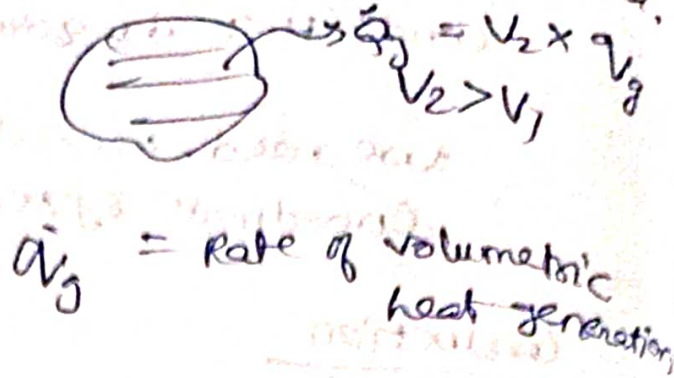 Q̇g = V2 × q̇g
V2 > V1
q̇g = Rate of volumetric
heat generation